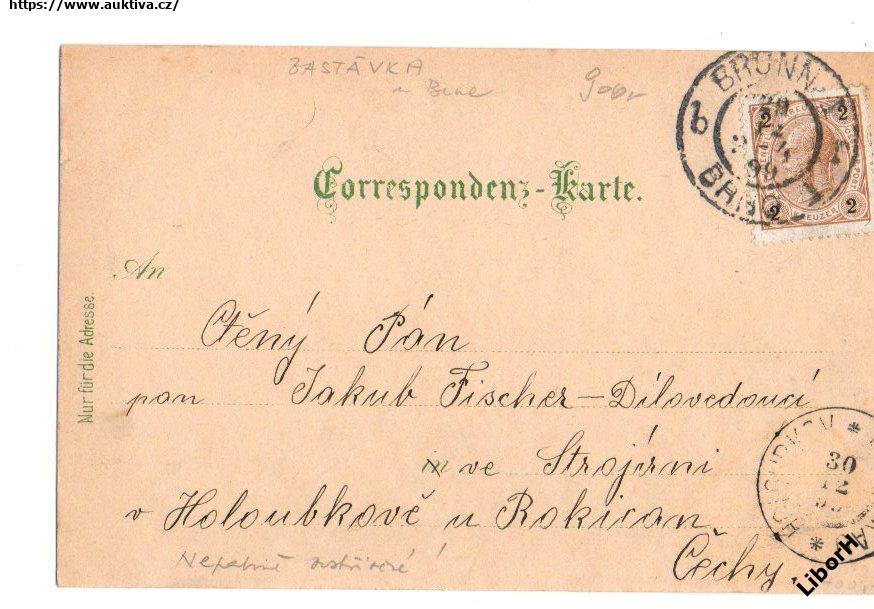 https://www.auktiva.cz/
ZASTÁVKA
u Brne
900,-
BRÜNN
b
BRNO
2 2
KREUZER
2 2
Correspondenz-Karte.
An
Nur für die Adresse.
Ctěný Pán
pan Jakub Fischer – Dílovedoucí
in ve Strojírni
v Holoubkově u Rokican
Čechy.
HOLOUBKOV
30
12
Nepatrně zastřižené!
LiborH